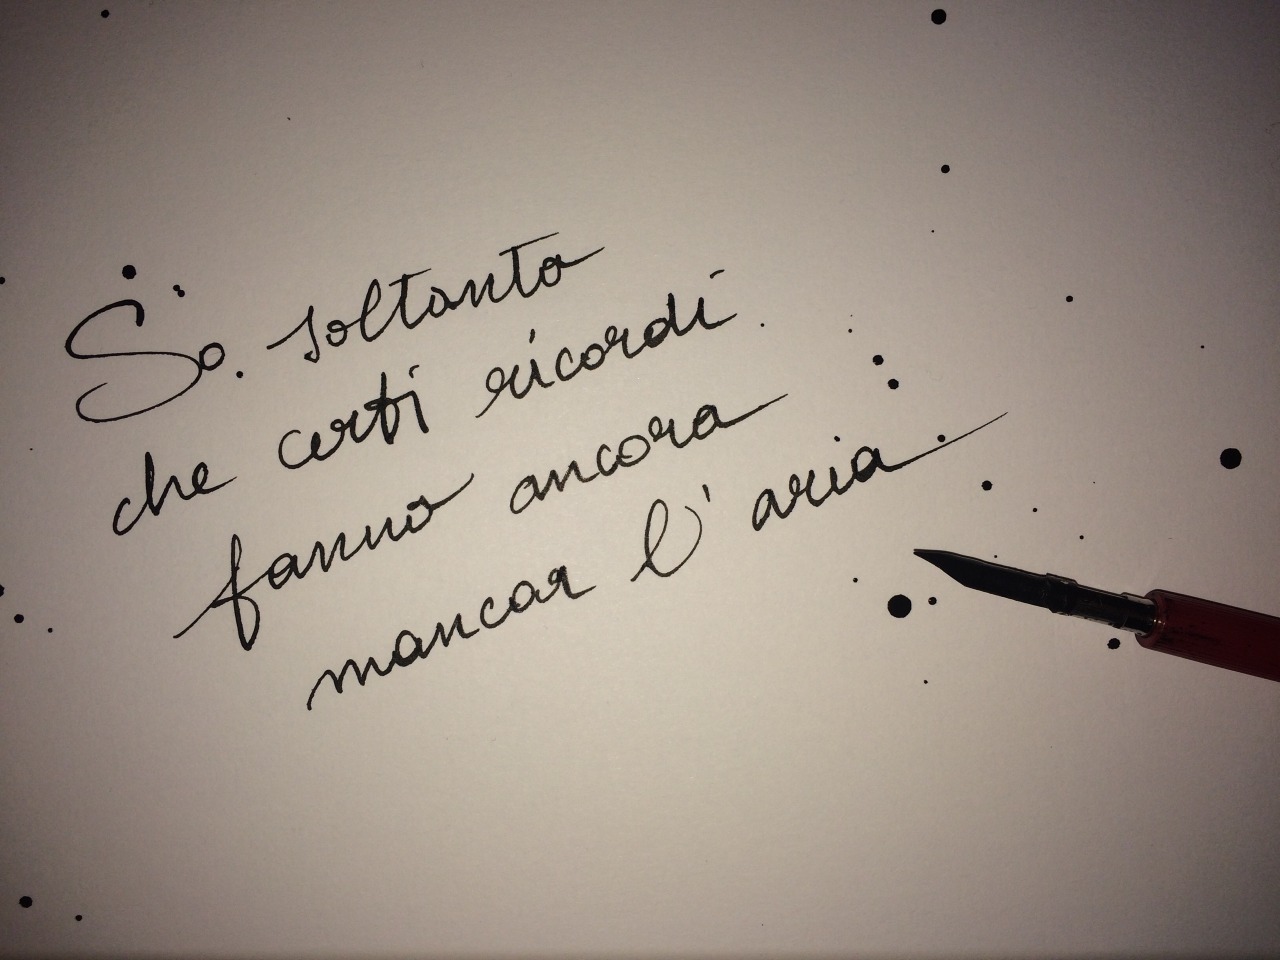 So soltanto
che certi ricordi
fanno ancora
mancar l'aria